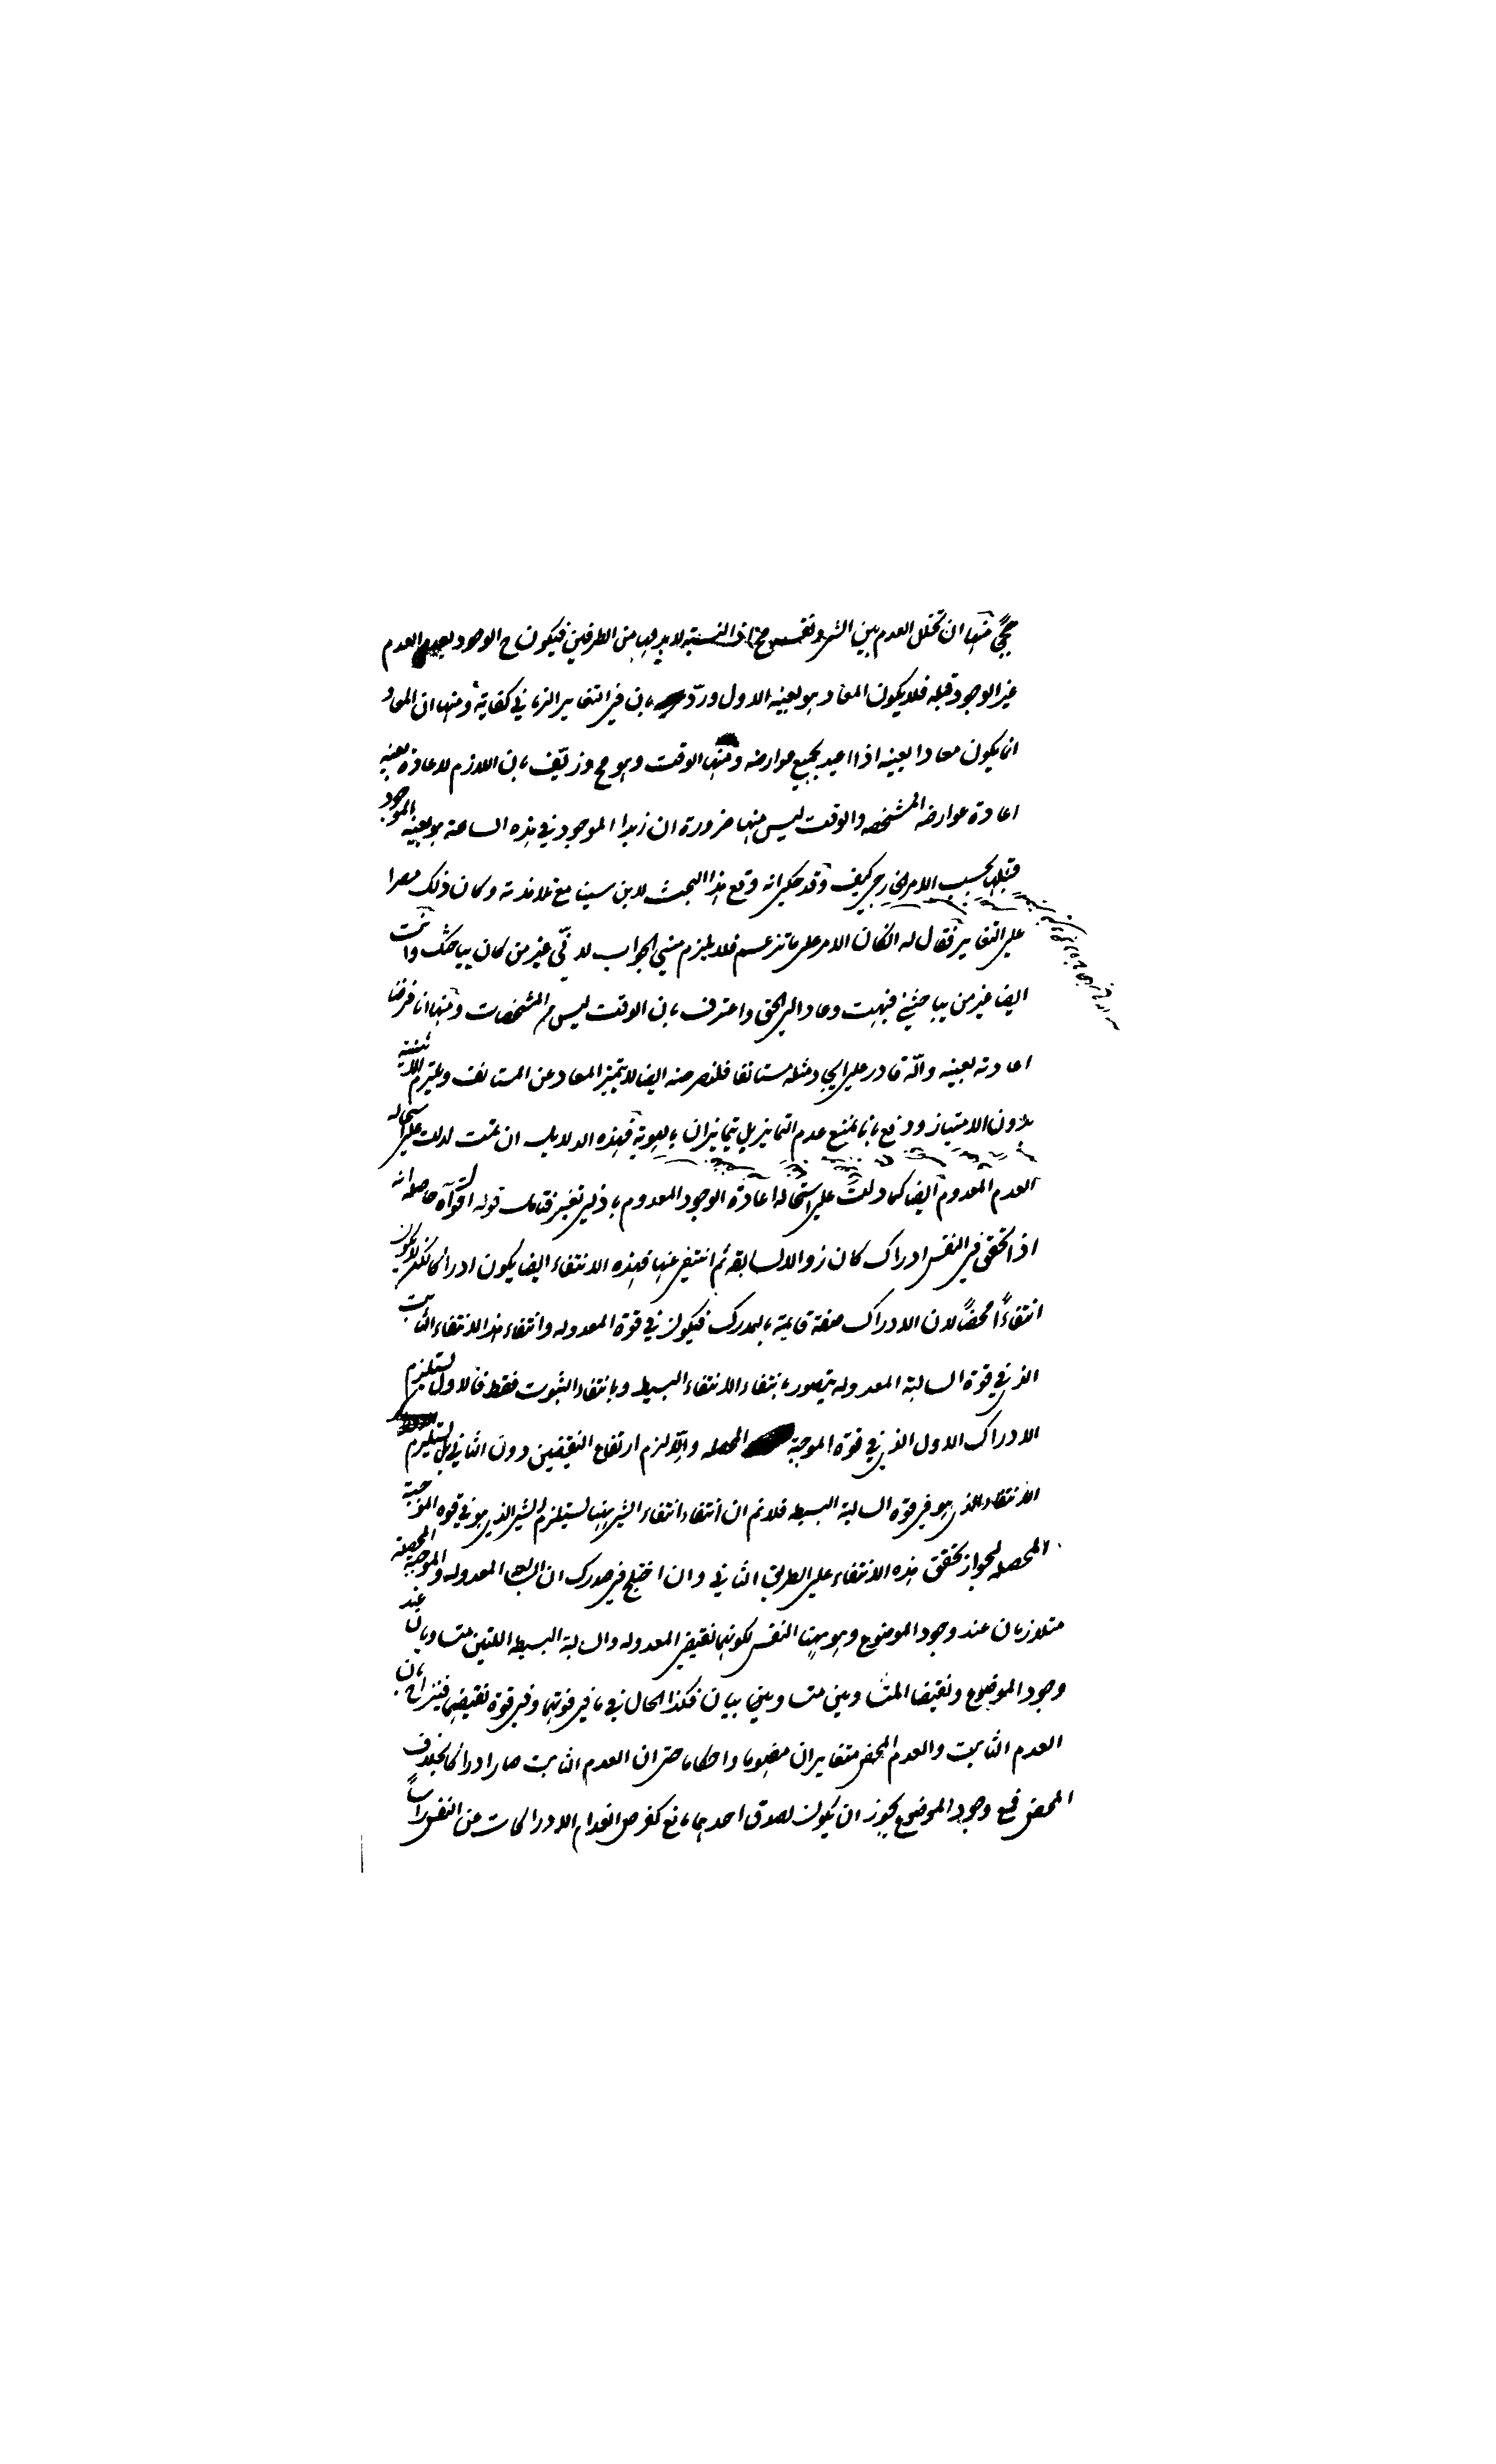 حجج منها ان تخلل العدم بين الشئ ونفسه مح اذ النسبة لا بد لها من الطرفين فيكون ح الوجود بعد العدم
غير الوجود قبله فلا يكون المعاد هو بعينه الاول وردّ بان في التغاير الزماني كفاية ومنها ان المعاد
انما يكون معادا بعينه اذا اعيد بجميع عوارضه ومنها الوقت وهو مح وزيّف بان اللازم لاعادة بعينه
اعادة عوارضه المشخصه والوقت ليس منها ضرورة ان زيدا الموجود في هذه الساعة هو بعينه الموجود
قبلها بحسب الامر الخارجي كيف وقد حكي انه وقع هذا البحث لابن سينا مع تلامذته وكان ذلك مصرا
على التغاير فقال له ان كان الامر على ما تزعم فلا يلزم مني الجواب لاني غير من كان يباحثك وانت
ايضا غير من يباحثني فبهت وعاد الى الحق واعترف بان الوقت ليس من المشخصات ومنها انا فرضنا
اعادته بعينه والله قادر على ايجاد مثله مستانفا فلنفرضه ايضا لا يتميز المعاد عن المستانف ويلزم الاثنينية
بدون الامتياز ودفع بانا نمنع عدم التمايز بل يتمايزان بالهوية فهذه الدلايل ان تمت لدلت على استحالة
العدم المعدوم ايضا كما دلت على استحالة اعادة الوجود المعدوم بادنى تغير فتامل قوله اقول آه حاصله انه
اذا تحقق في النفس ادراك كان زوالا لسابقه ثم انتفى عنها فهذه الانتفاء ايضا يكون ادراكا لكن لا يكون
انتفاءً محضاً لان الادراك صفة قايمة بالمدرك فيكون في قوة المعدوله وانتفاء هذا الانتفاء الثابت
الذي في قوة السالبة المعدوله يتصور بانتفاء الانتفاء البسيط وبانتفاء الثبوت فقط فالاول يستلزم
الادراك الاول الذي في قوة الموجبة المحصله والا لزم ارتفاع النقيضين دون الثاني بل يستلزم
الانتفاء الذي هو في قوة السالبة البسيطه فلا نم ان انتفاء انتفاء الشئ ههنا يستلزم الشئ الذي هو في قوة الموجبة
المحصله لجواز تحقق هذه الانتفاء على الطريق الثاني وان اختلج في صدرك ان السالبة المعدوله والموجبة المحصلة
متلازمان عند وجود الموضوع وهو ههنا النفس لكونهما نقيضي المعدوله والسالبة البسيطه اللتين متساويان عند
وجود الموضوع ونقيضا المتساويين متساويين فكذا الحال في ما في قوتهما وفي قوة نقيضهما فيزاح بان
العدم الثابت والعدم المحض متغايران مفهوما واحكاما حتى ان العدم الثابت صار ادراكا بخلاف
المحض فمع وجود الموضوع يجوز ان يكون لصدق احدهما مانع كفرض انعدام الادراكات عن النفس راسا